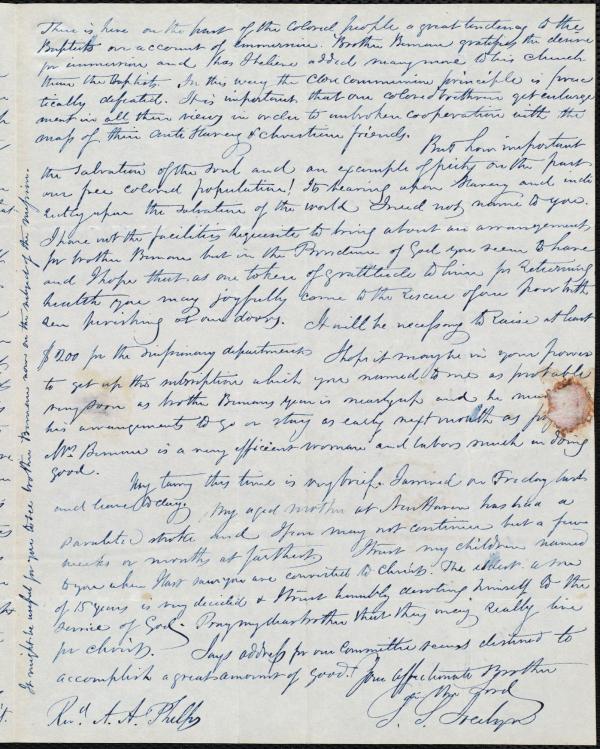 There is here on the part of the colored people a great tendency to the
Baptists on account of immersion. Brother Beman gratifies the desire
for immersion and has I believe added many more to his church
than the Baptists. In this way the close communion principle is prac
tically defeated. It is important that our colored brethren get enlarge
ment in all their views in order to unbroken cooperation with the
mass of their anti slavery & christian friends.
But how important
the salvation of the soul and an example of piety on the part
our free colored population! Its bearing upon slavery and indi
rectly upon the salvation of the world I need not name to you.
I have not the facilities requisite to bring about an arrangement
for brother Beman but in the Providence of God you seem to have
and I hope that as one token of gratitude to him for returning
health you may joyfully come to the rescue of our poor breth
ren perishing at our doors. It will be necessary to raise at least
$200 for the missionary department. I hope it may be in your power
to get up the subscription which you named to me as probable
very soon as brother Bemans year is nearly up and he
his arrangements to go or stay as early next month as
Mrs. Beman is a very efficient woman and labors much in doing
good.
My tarry this time is very brief. I arrived on Friday last
and leave today. My aged mother at New Haven has had a
paralitic stroke and I fear may not continue but a few
weeks or months at farthest. I trust my children named
to you when I last saw you are converted to Christ. The eldest a son
of 15 years is very decided & I trust humbly devoting himself to the
service of God. Pray my dear brother that they may really live
for christ. Says address for our Committee seems destined to
accomplish a great amount of good. Your affectionate Brother
in the Lord
S. S. Jocelyn
Revd. A. A. Phelps
It might be useful for you to see brother Beman now on the subject of the mission.